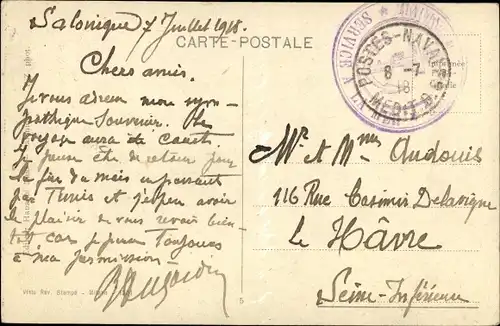 Salonique 7 Juillet 1918.
CARTE-POSTALE
Chers amis.
Je vous adresse mon sym-
pathique Souvenir. Le
voyage aura été court
Je pense être de retour pour
la fin du mois en passant
par Tunis et j'espère avoir
le plaisir de vous revoir bien-
tôt car je pense toujours
à ma permission
POSTES-NAVALES
8 - 7
18
MEDIT
SERVICE À LA MER
Mr et Mme Audouis
116 Rue Casimir Delavigne
Le Hâvre
Seine-Inférieure
Visto Rev. Stampa - Milano
5